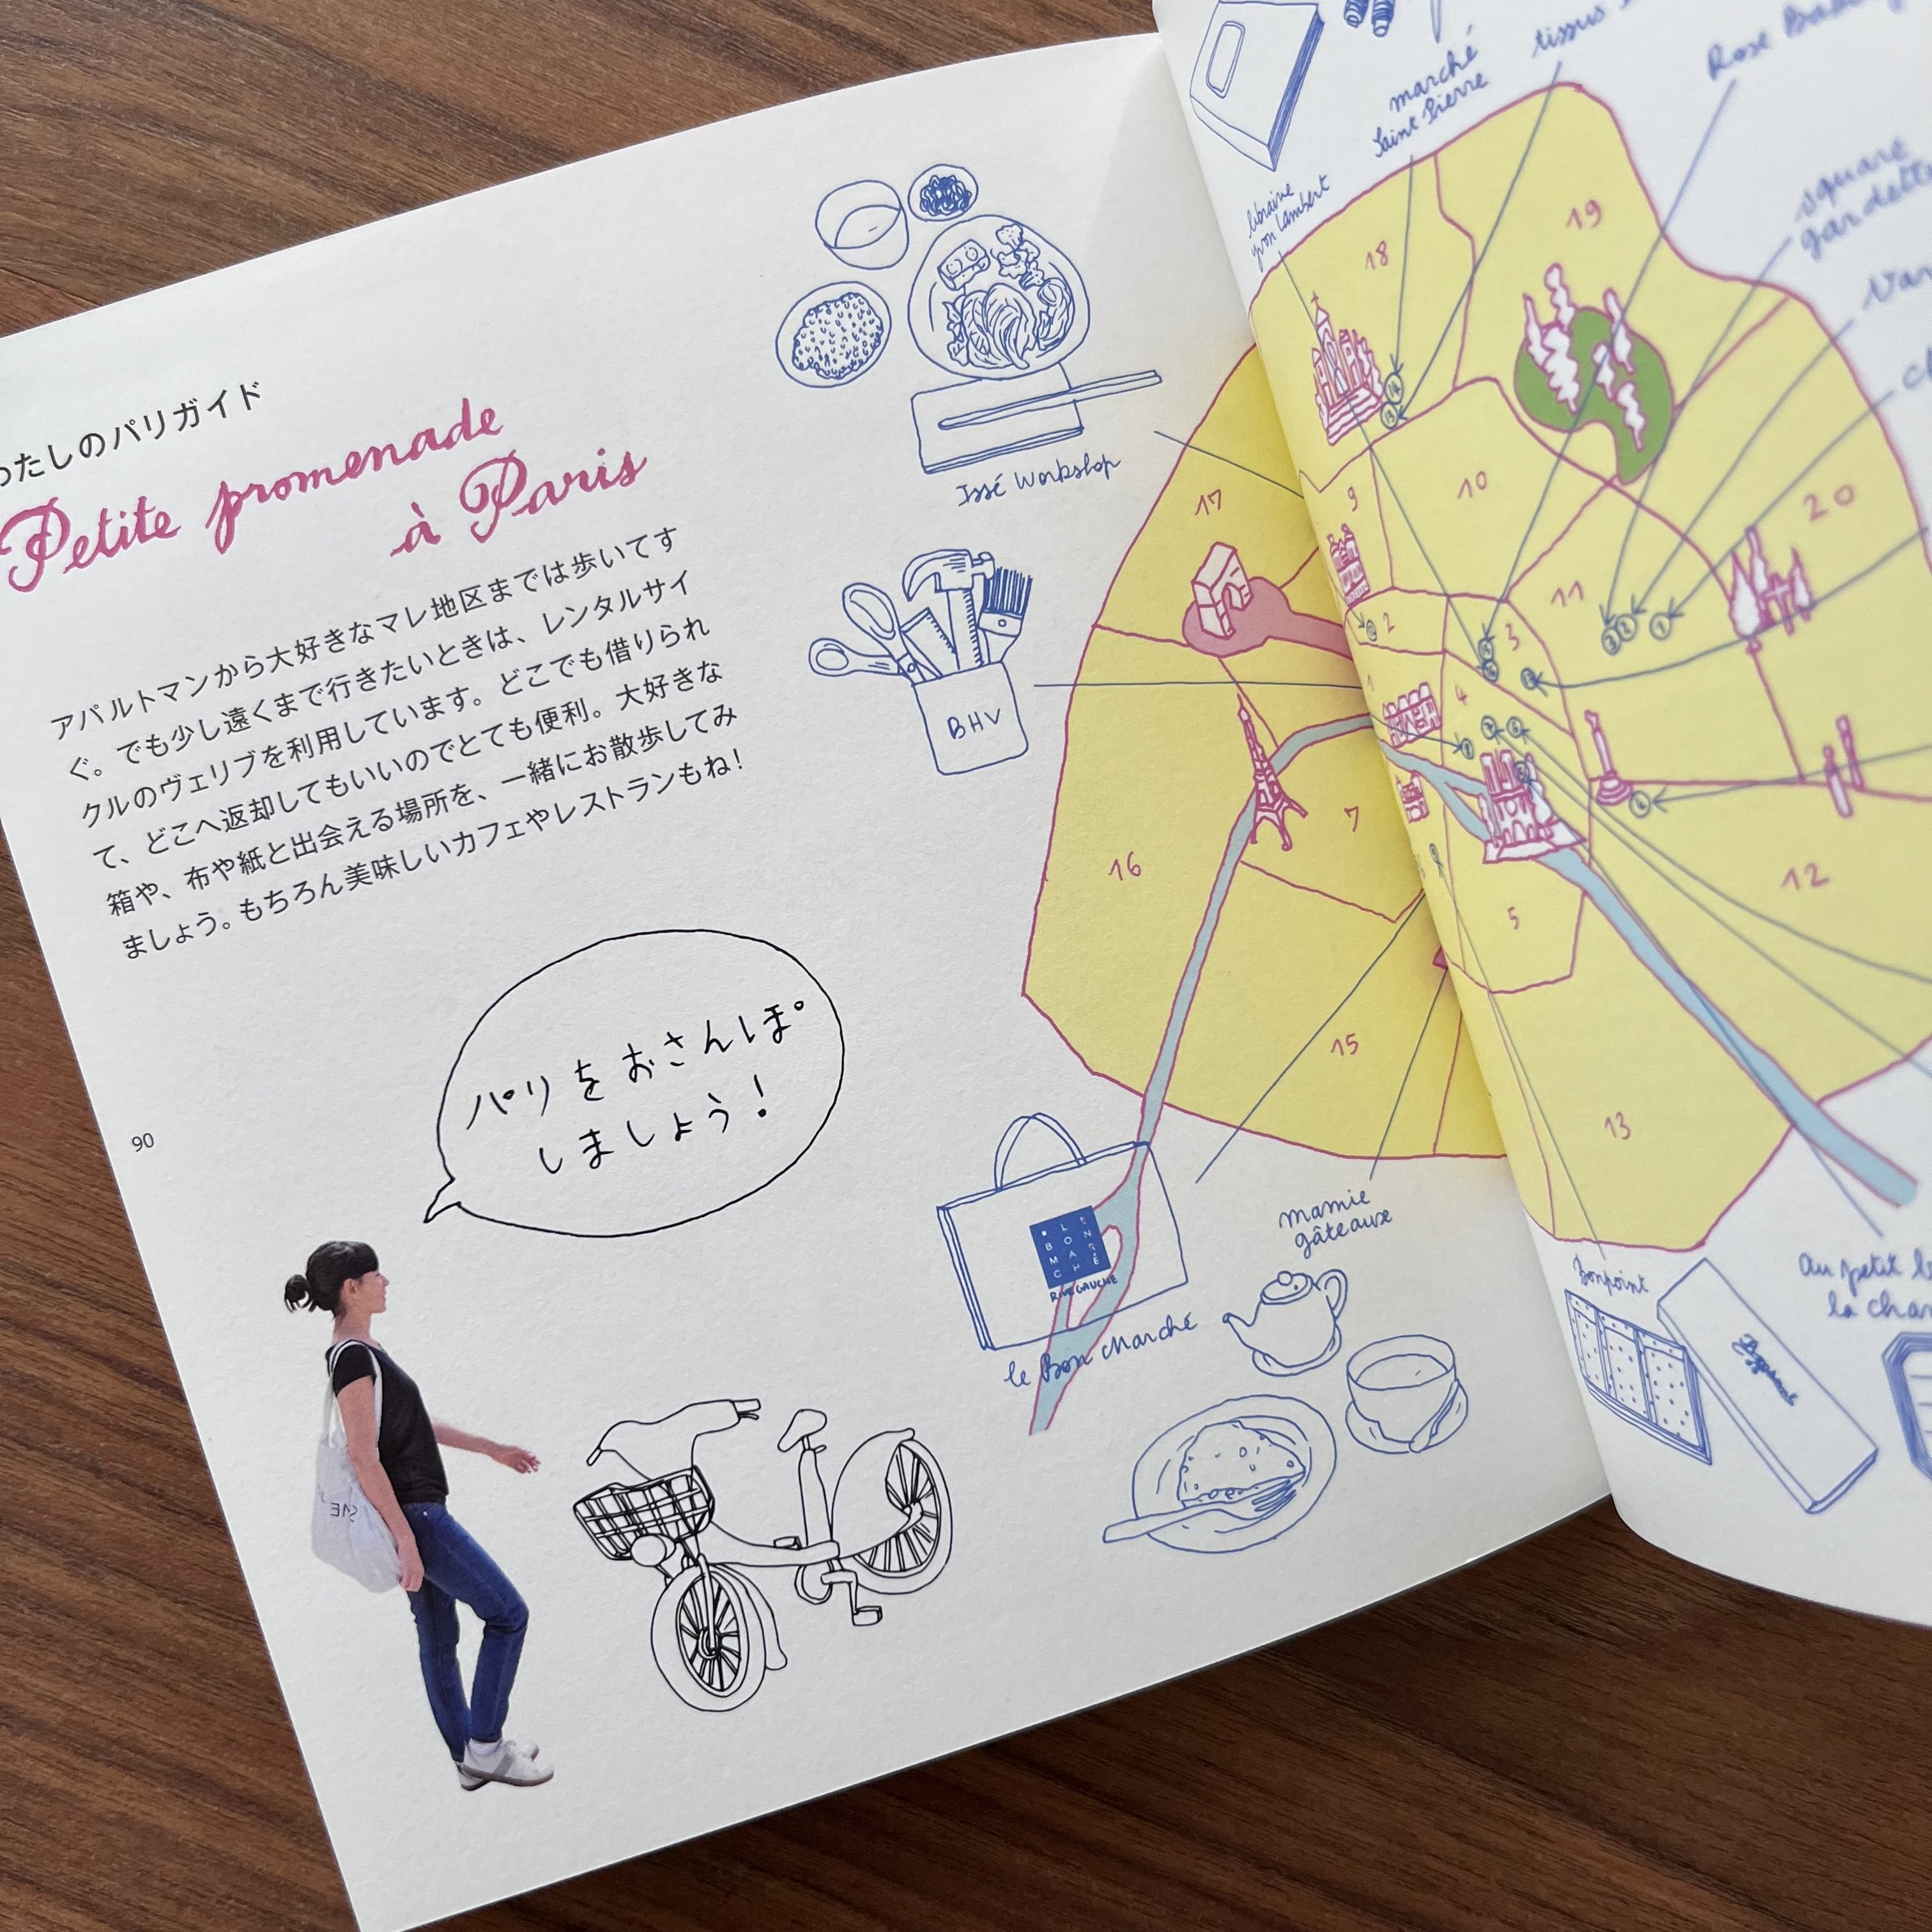 わたしのパリガイド
Petite promenade
à Paris
アパルトマンから大好きなマレ地区までは歩いてす
ぐ。でも少し遠くまで行きたいときは、レンタルサイ
クルのヴェリブを利用しています。どこでも借りられ
て、どこへ返却してもいいのでとても便利。大好きな
箱や、布や紙と出会える場所を、一緒にお散歩してみ
ましょう。もちろん美味しいカフェやレストランもね！
パリをおさんぽ
しましょう！
90
Issé Workshop
BHV
LE BON MARCHÉ
RIVE GAUCHE
le Bon Marché
mamie
gâteaux
17
16
7
15
librairie
yvon Lambert
marché
Saint Pierre
tissus
Rose
square
gardette
18
19
9
10
20
2
3
11
1
4
12
5
13
Bonpoint
Au petit
la